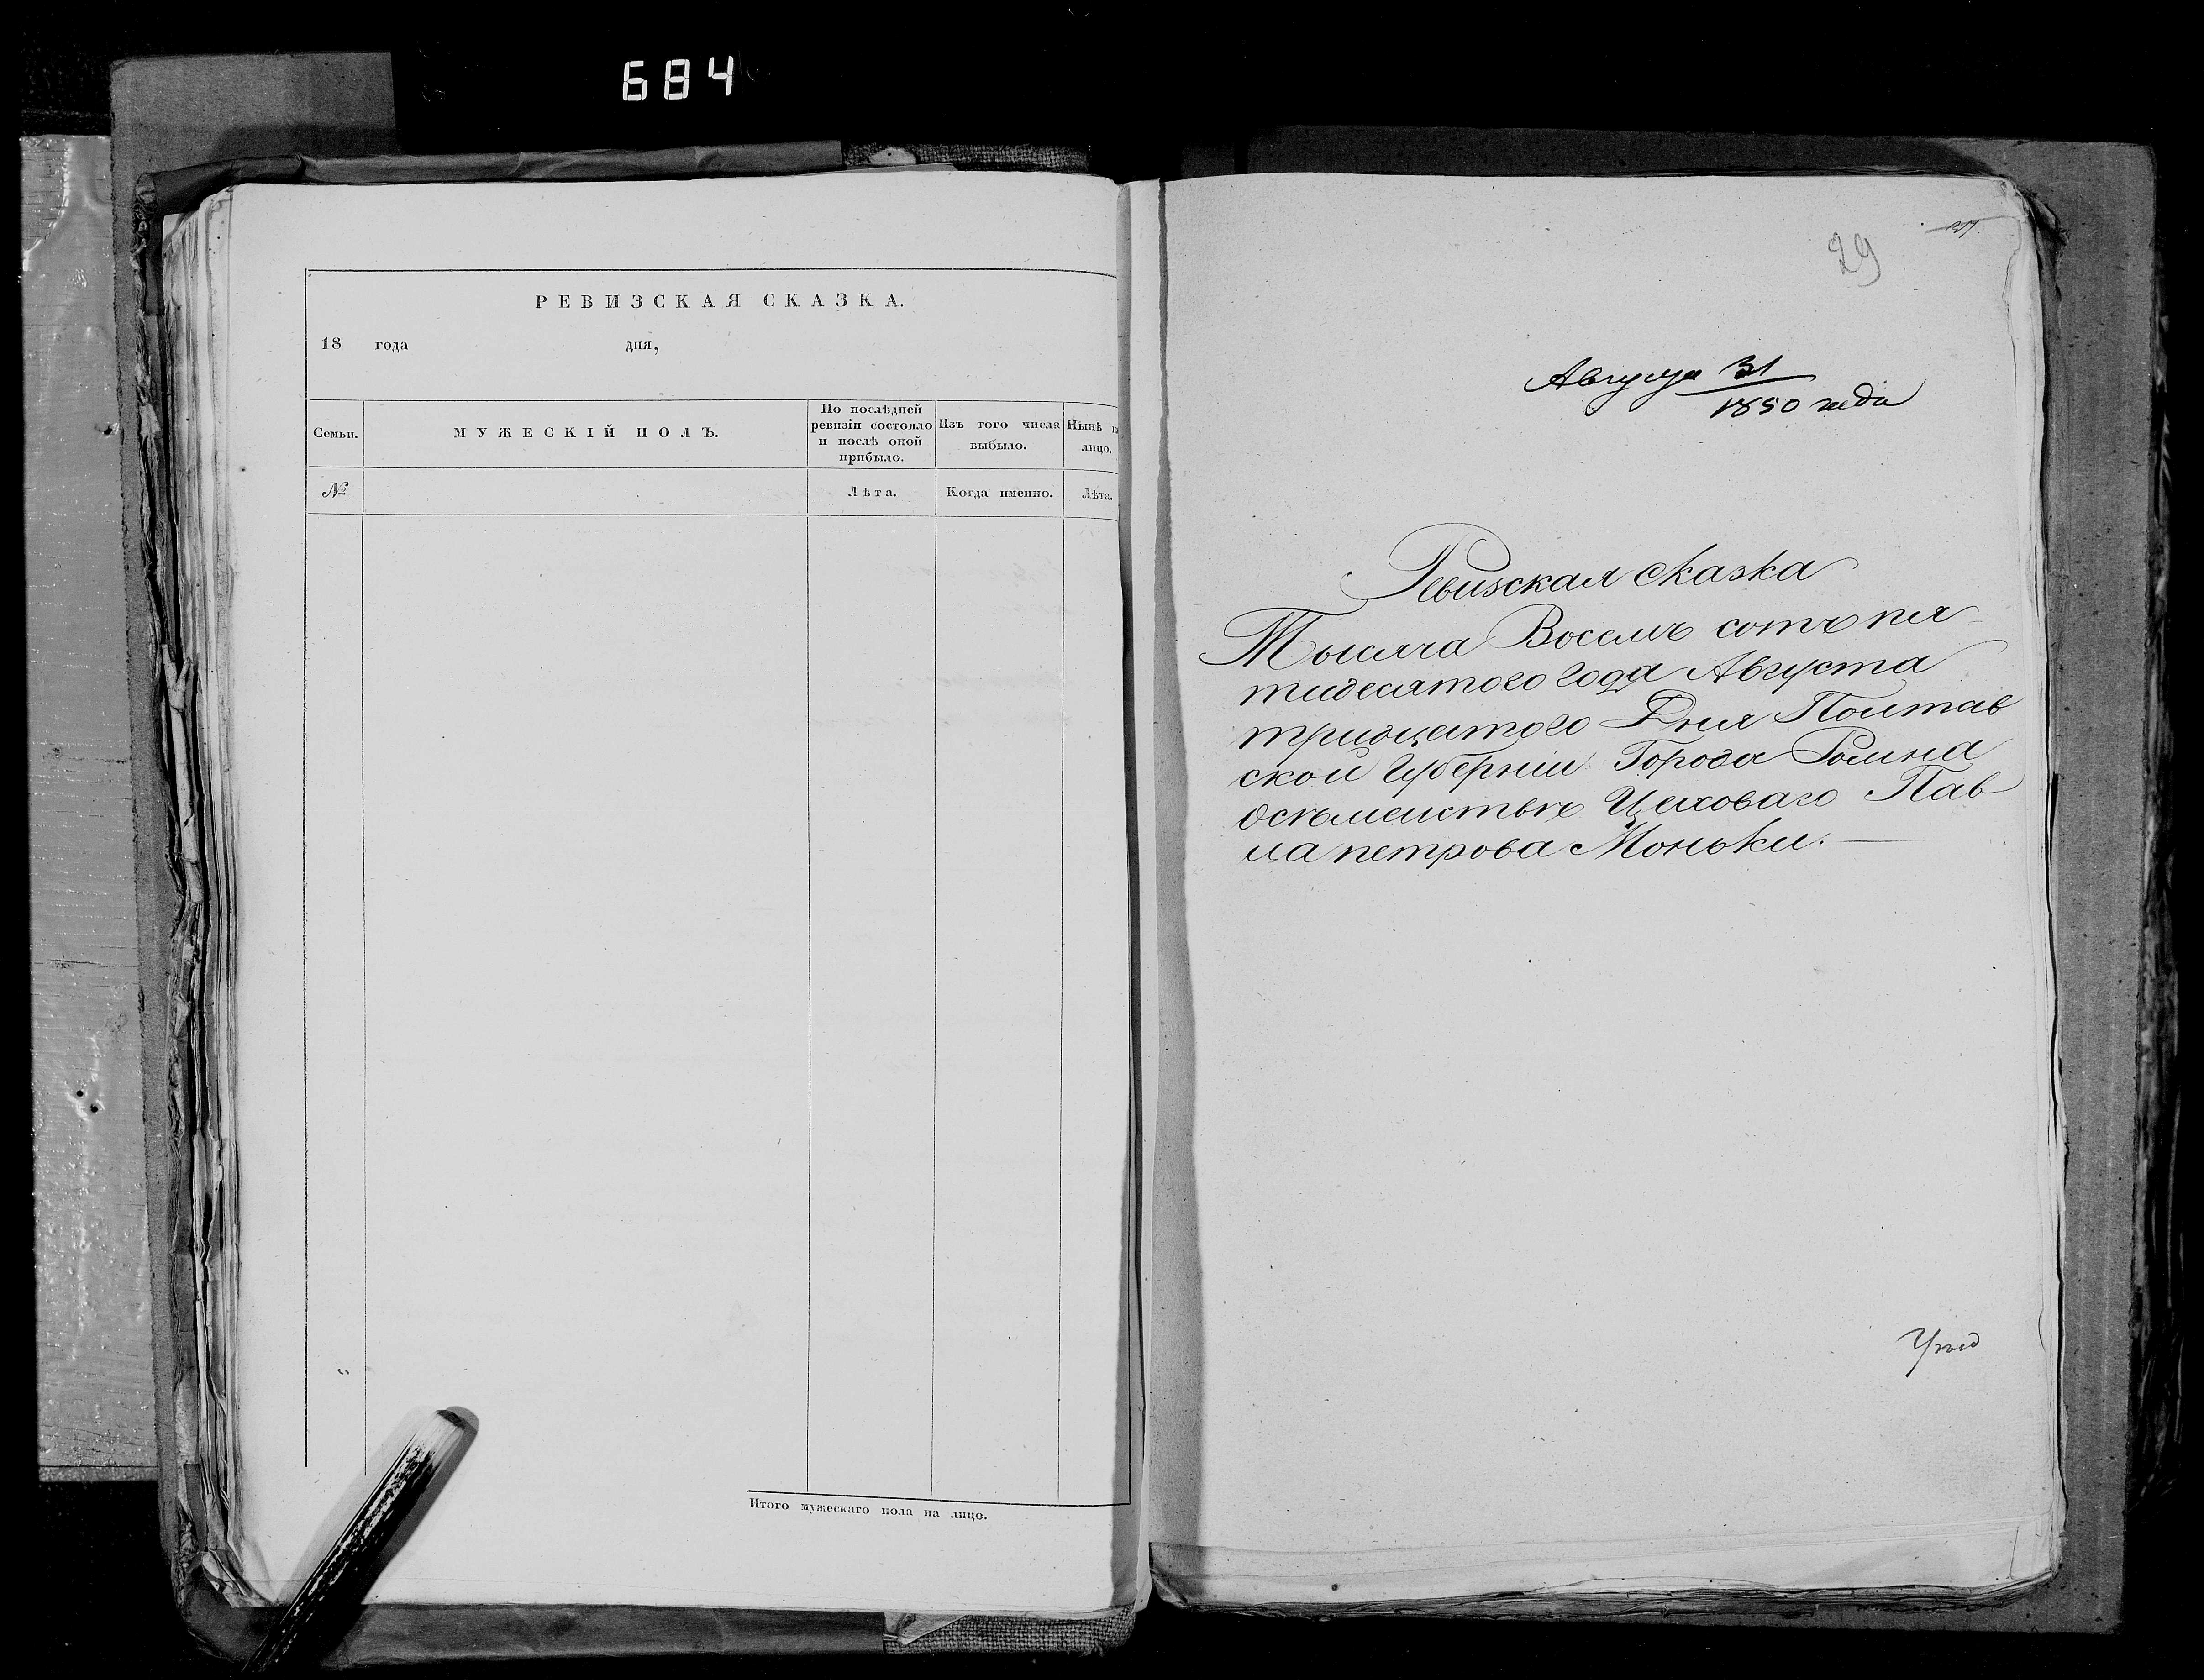 684
РЕВИЗСКАЯ СКАЗКА.
18 года дня,
Семьи.
МУЖЕСКІЙ ПОЛЪ.
По послѣдней
ревизіи состояло
и послѣ оной
прибыло.
Изъ того числа
выбыло.
Нынѣ
лицо.
№
Лѣта.
Когда именно.
Лѣта.
Итого мужескаго пола на лицо.
29
Августа 31
1850 года
Ревизская сказка
Тысяча Восемъ сотъ пя
тидесятого года Августа
тридцатого Дня Полтав
ской Губерніи Города Ромна
Цеховаго Пав
ла петрова Моньки.